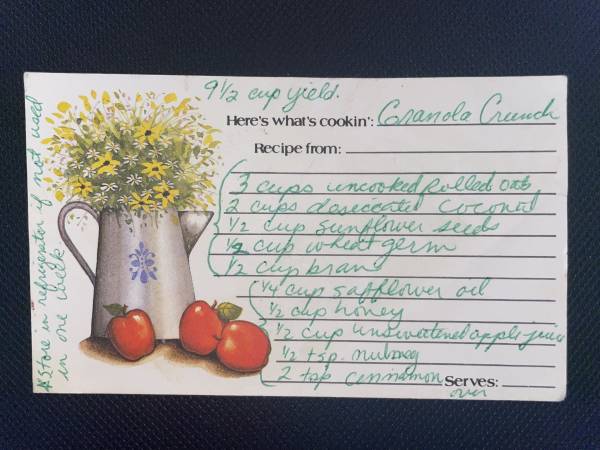 9 1/2 cup yield.
Here's what's cookin': Granola Crunch
Recipe from:
3 cups uncooked Rolled Oats
2 cups desiccated coconut
1/2 cup sunflower seeds
1/2 cup wheat germ
1/2 cup bran
1/4 cup safflower oil
1/2 cup honey
1/2 cup unsweetened apple juice
1/2 tsp. nutmeg
2 tsp cinnamon
Serves:
over
*Store in refrigerator if not used
in one week.